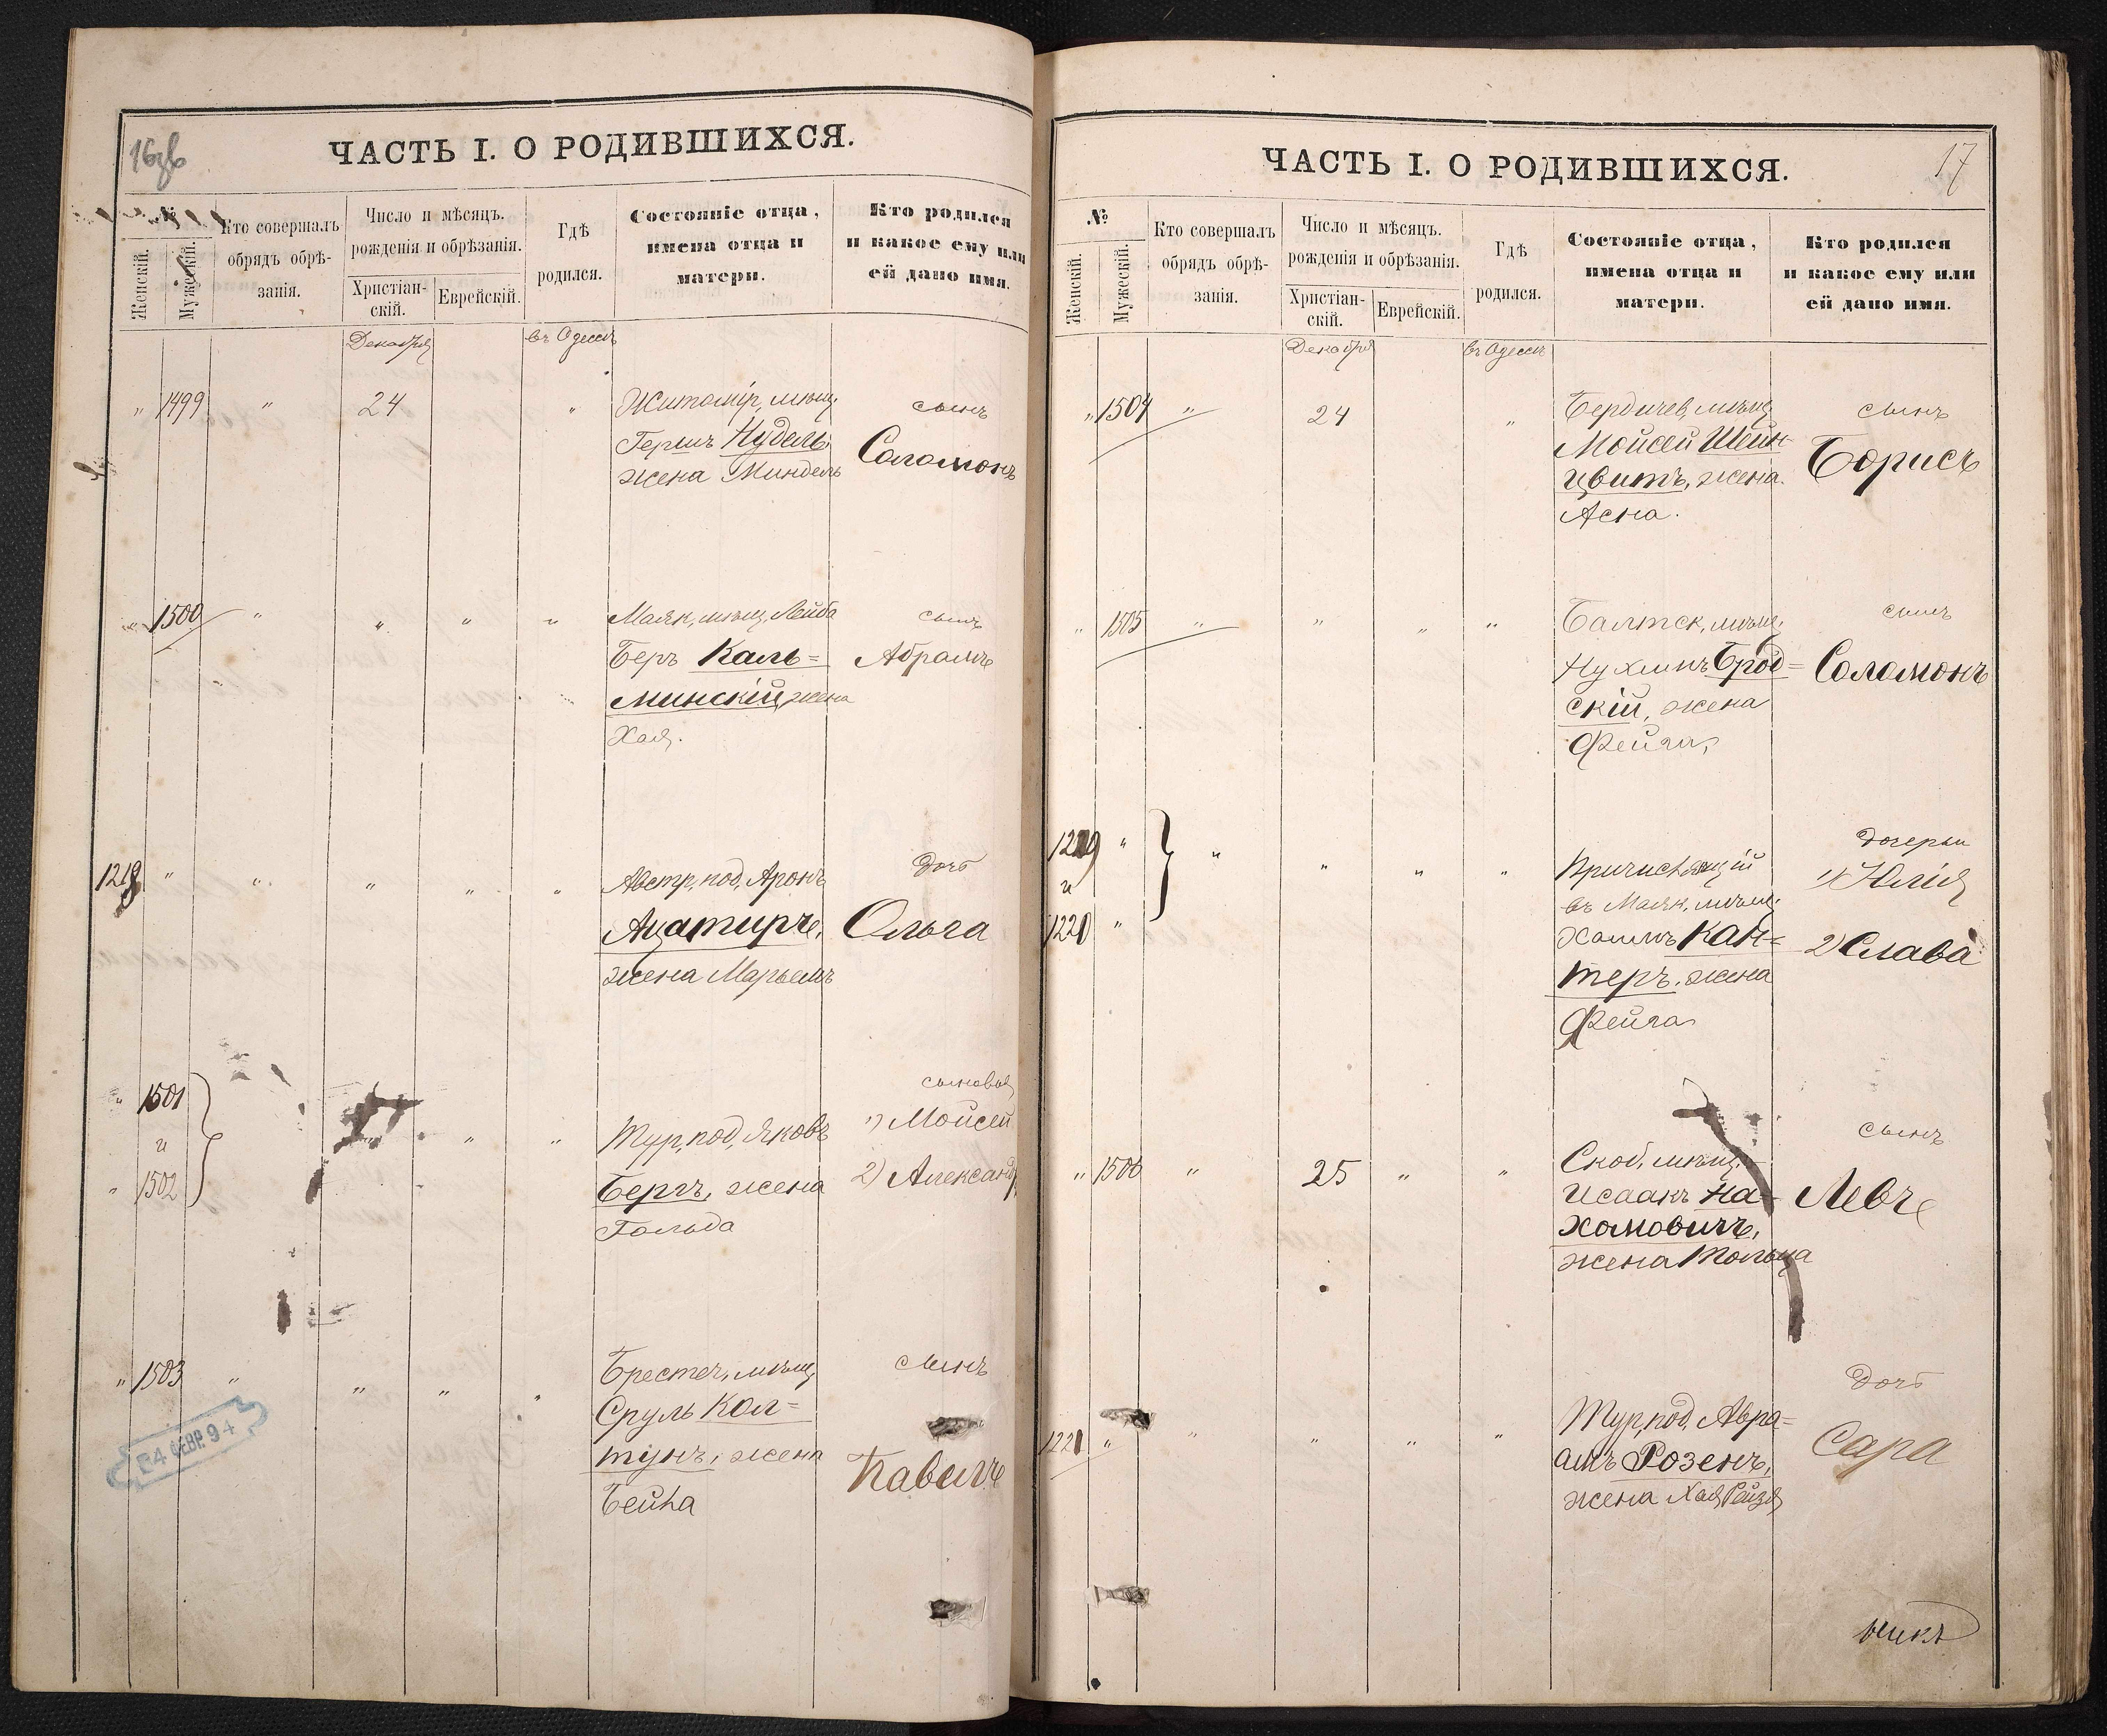 16об
ЧАСТЬ I. О РОДИВШИХСЯ.
№
Женскій.
Мужескій.
Кто совершалъ
обрядъ обрѣ-
занія.
Число и мѣсяцъ.
рожденія и обрѣзанія.
Христіан-
скій.
Еврейскій.
Гдѣ
родился.
Состояніе отца,
имена отца и
матери.
Кто родился
и какое ему или
ей дано имя.
Декабря
въ Одессѣ
" 1499 " 24 " Житомір, мѣщ, сынъ
Гершъ Нудель,
жена Миндель Соломонъ
" 1500 " " " " Маяк, мѣщ, Лейба сынъ
Беръ Каль= Абрамъ
минскій, жена
Хая.
1218 " " " " " Австр, под, Аронъ дочь
жена Марьемъ Ольга
" 1501 " " " Тур, под, Яковъ сыновья
и 1) Мойсей
" 1502 Бергъ, жена 2) Александръ
Гольда
" 1503 " " " " Бреcтеч, мѣщ, сынъ
Сруль Кол=
тунъ, жена Павелъ
Бейла
24 ФЕВР. 94
17
ЧАСТЬ I. О РОДИВШИХСЯ.
№
Женскій.
Мужескій.
Кто совершалъ
обрядъ обрѣ-
занія.
Число и мѣсяцъ.
рожденія и обрѣзанія.
Христіан-
скій.
Еврейскій.
Гдѣ
родился.
Состояніе отца,
имена отца и
матери.
Кто родился
и какое ему или
ей дано имя.
Декабря
въ Одессѣ
" 1504 " 24 " Бердичев, мѣщ, сынъ
Мойсей Шейн-
цвитъ, жена Борисъ
Асна.
" 1505 " " " " Балтск, мѣщ, сынъ
Нухимъ Брод= Соломонъ
скій, жена
Фейга,
1219 " " " " " Причисляющій дочери
и въ Маяк, мѣщ, 1) Юлія
1220 " Хаимъ Кан=
теръ, жена 2) Слава
Фейга
" 1506 " 25 " " Скоб, мѣщ, сынъ
Исаакъ На-
хомовичъ, Левъ
жена Тольца
1221 " " " " " Тур, под, Авра= дочь
амъ Розенъ, Сара
жена Хая Рейзя